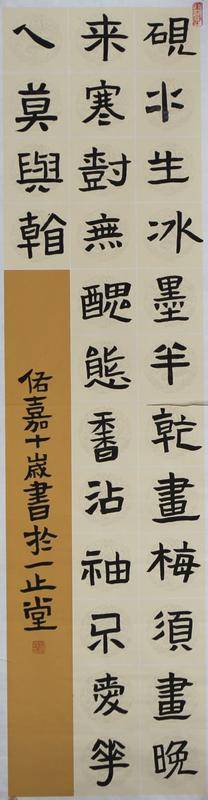 硯水生冰墨半乾畫梅須畫晚
来寒尌無醜態香沾袖不愛華
人莫與看
佑嘉十歲書於一止堂